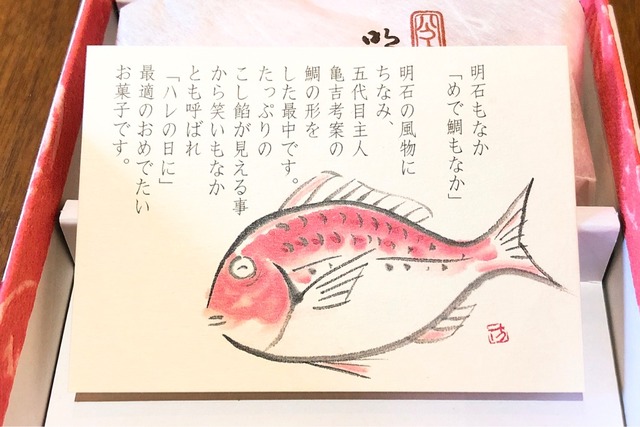 明石もなか
「めで鯛もなか」
明石の風物に
ちなみ、
五代目主人
亀吉考案の
鯛の形を
した最中です。
たっぷりの
こし餡が見える事
から笑いもなか
とも呼ばれ
「ハレの日に」
最適のおめでたい
お菓子です。